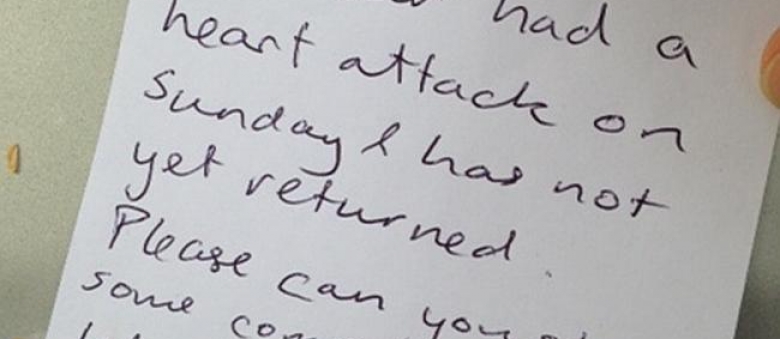 had a
heart attack on
Sunday & has not
yet returned.
Please can you
some